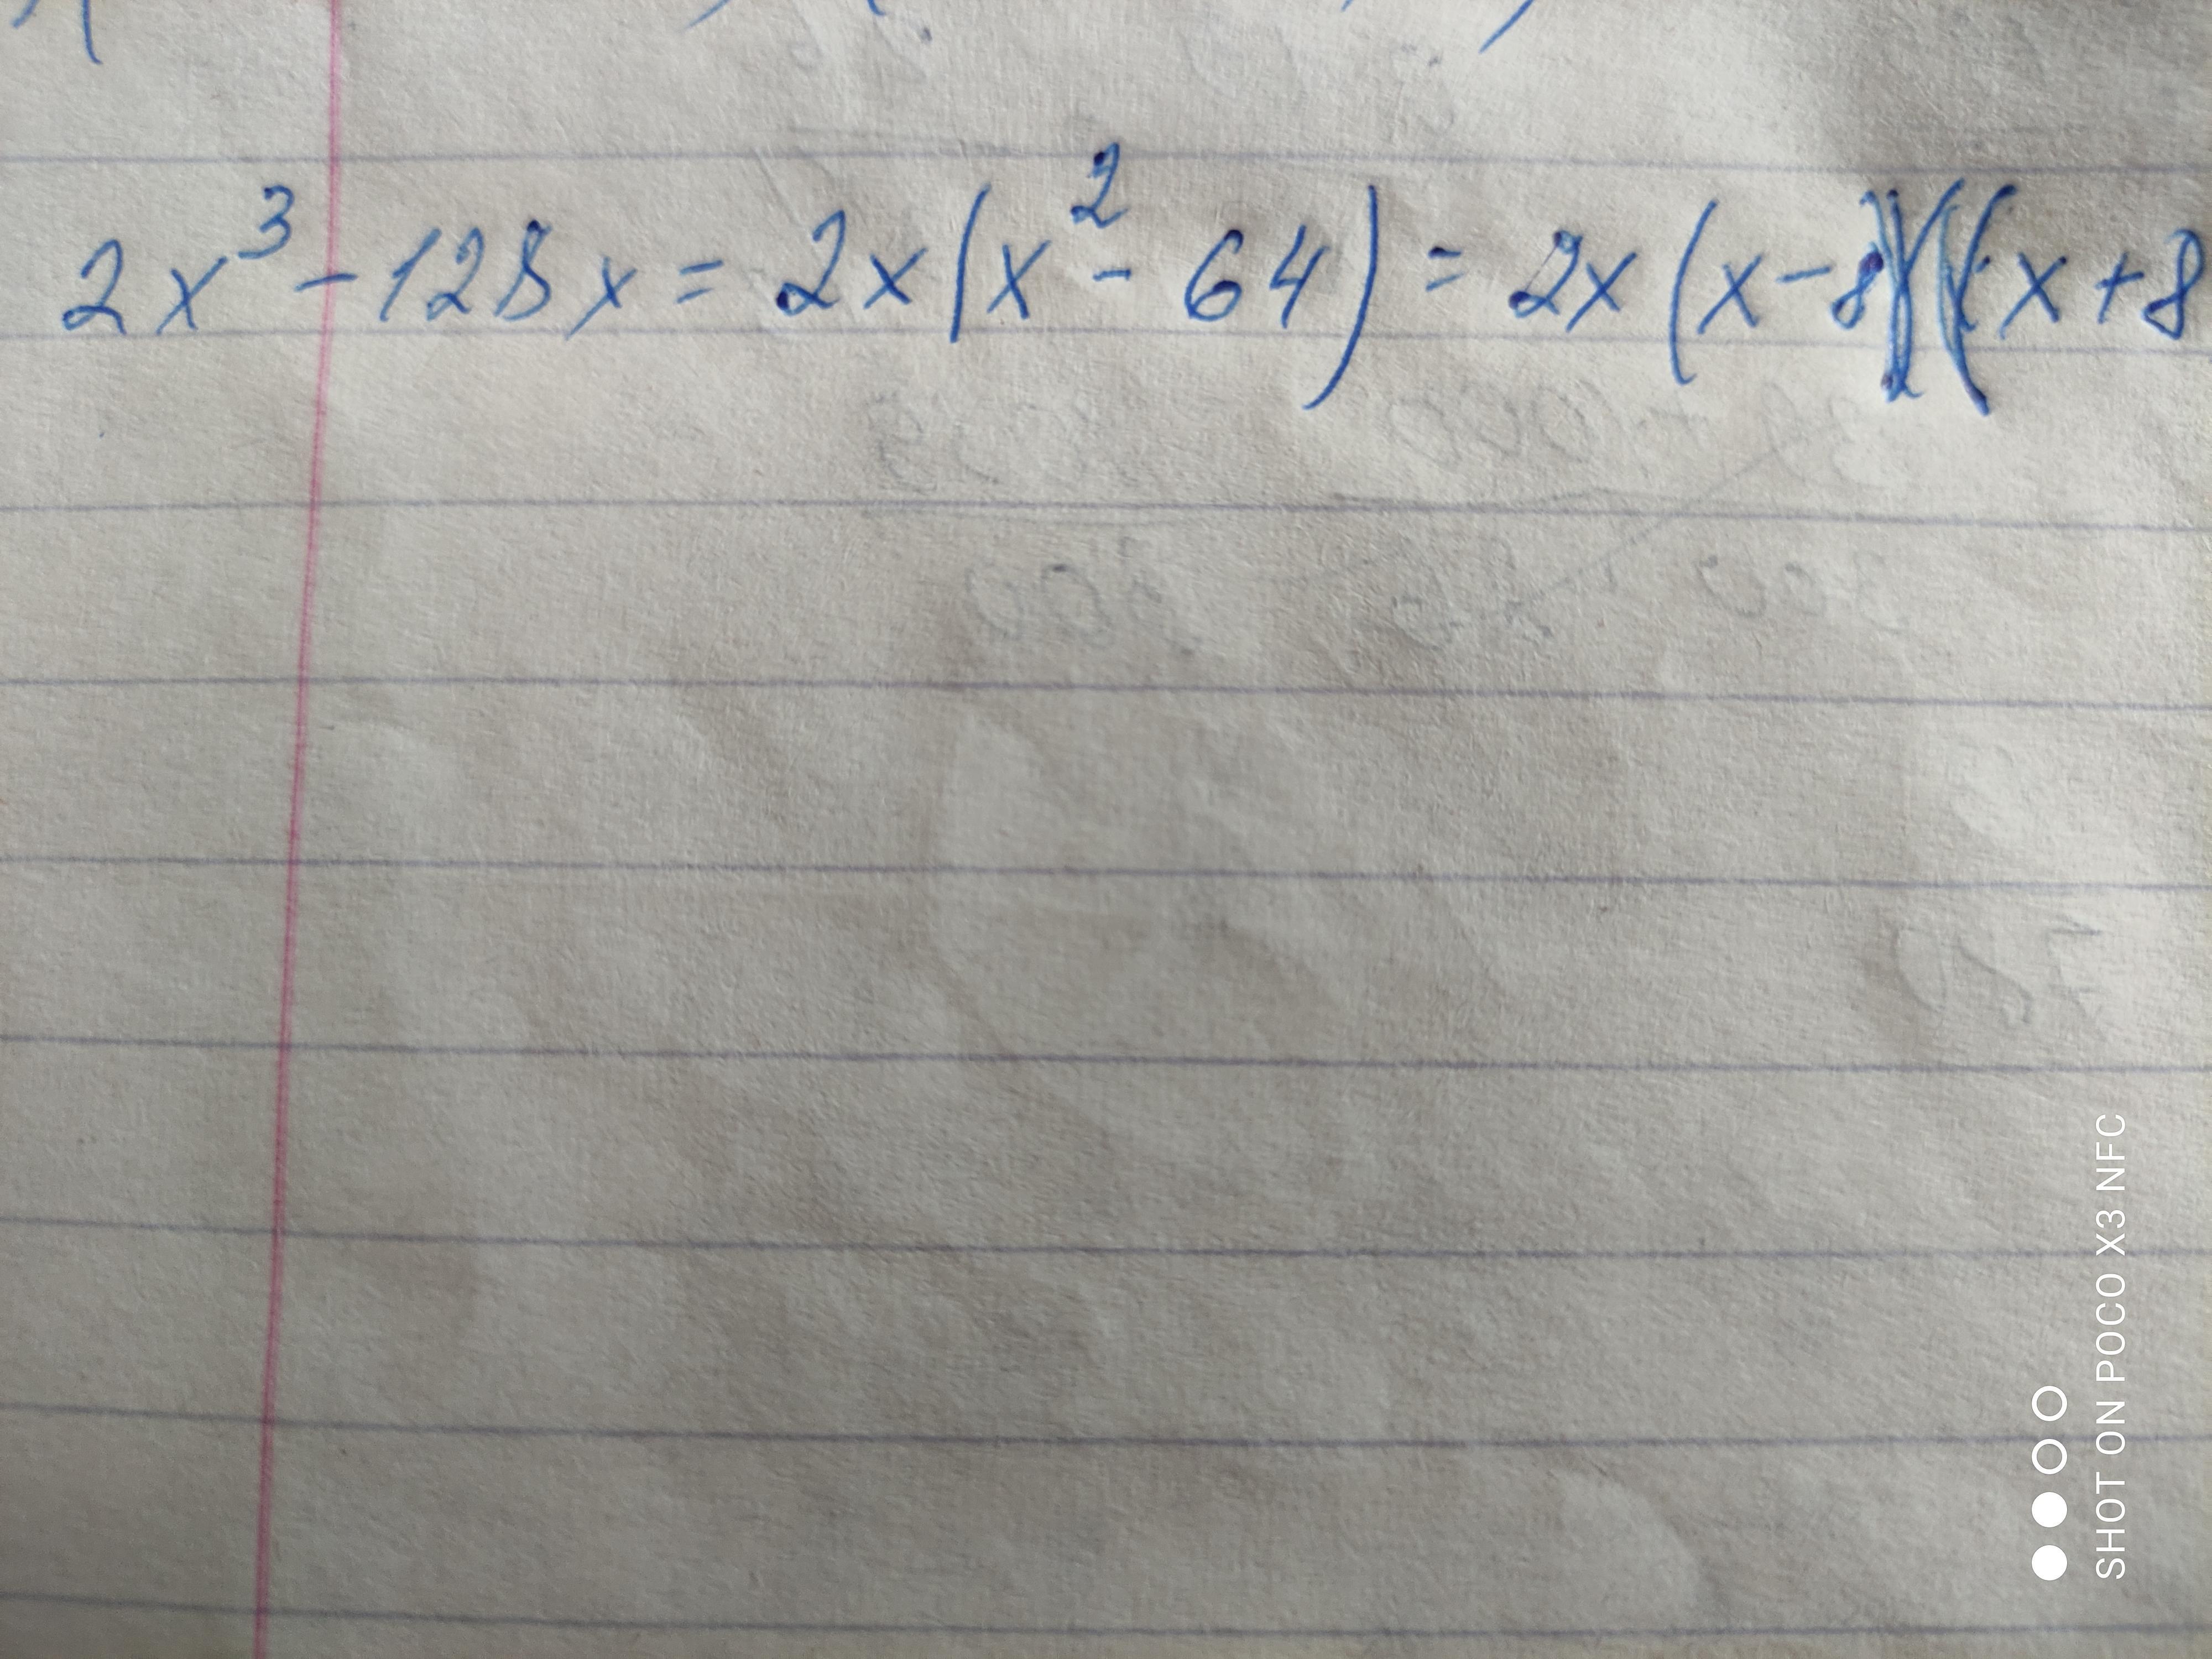 2x³-128x = 2x(x²-64) = 2x(x-8)(x+8
SHOT ON POCO X3 NFC